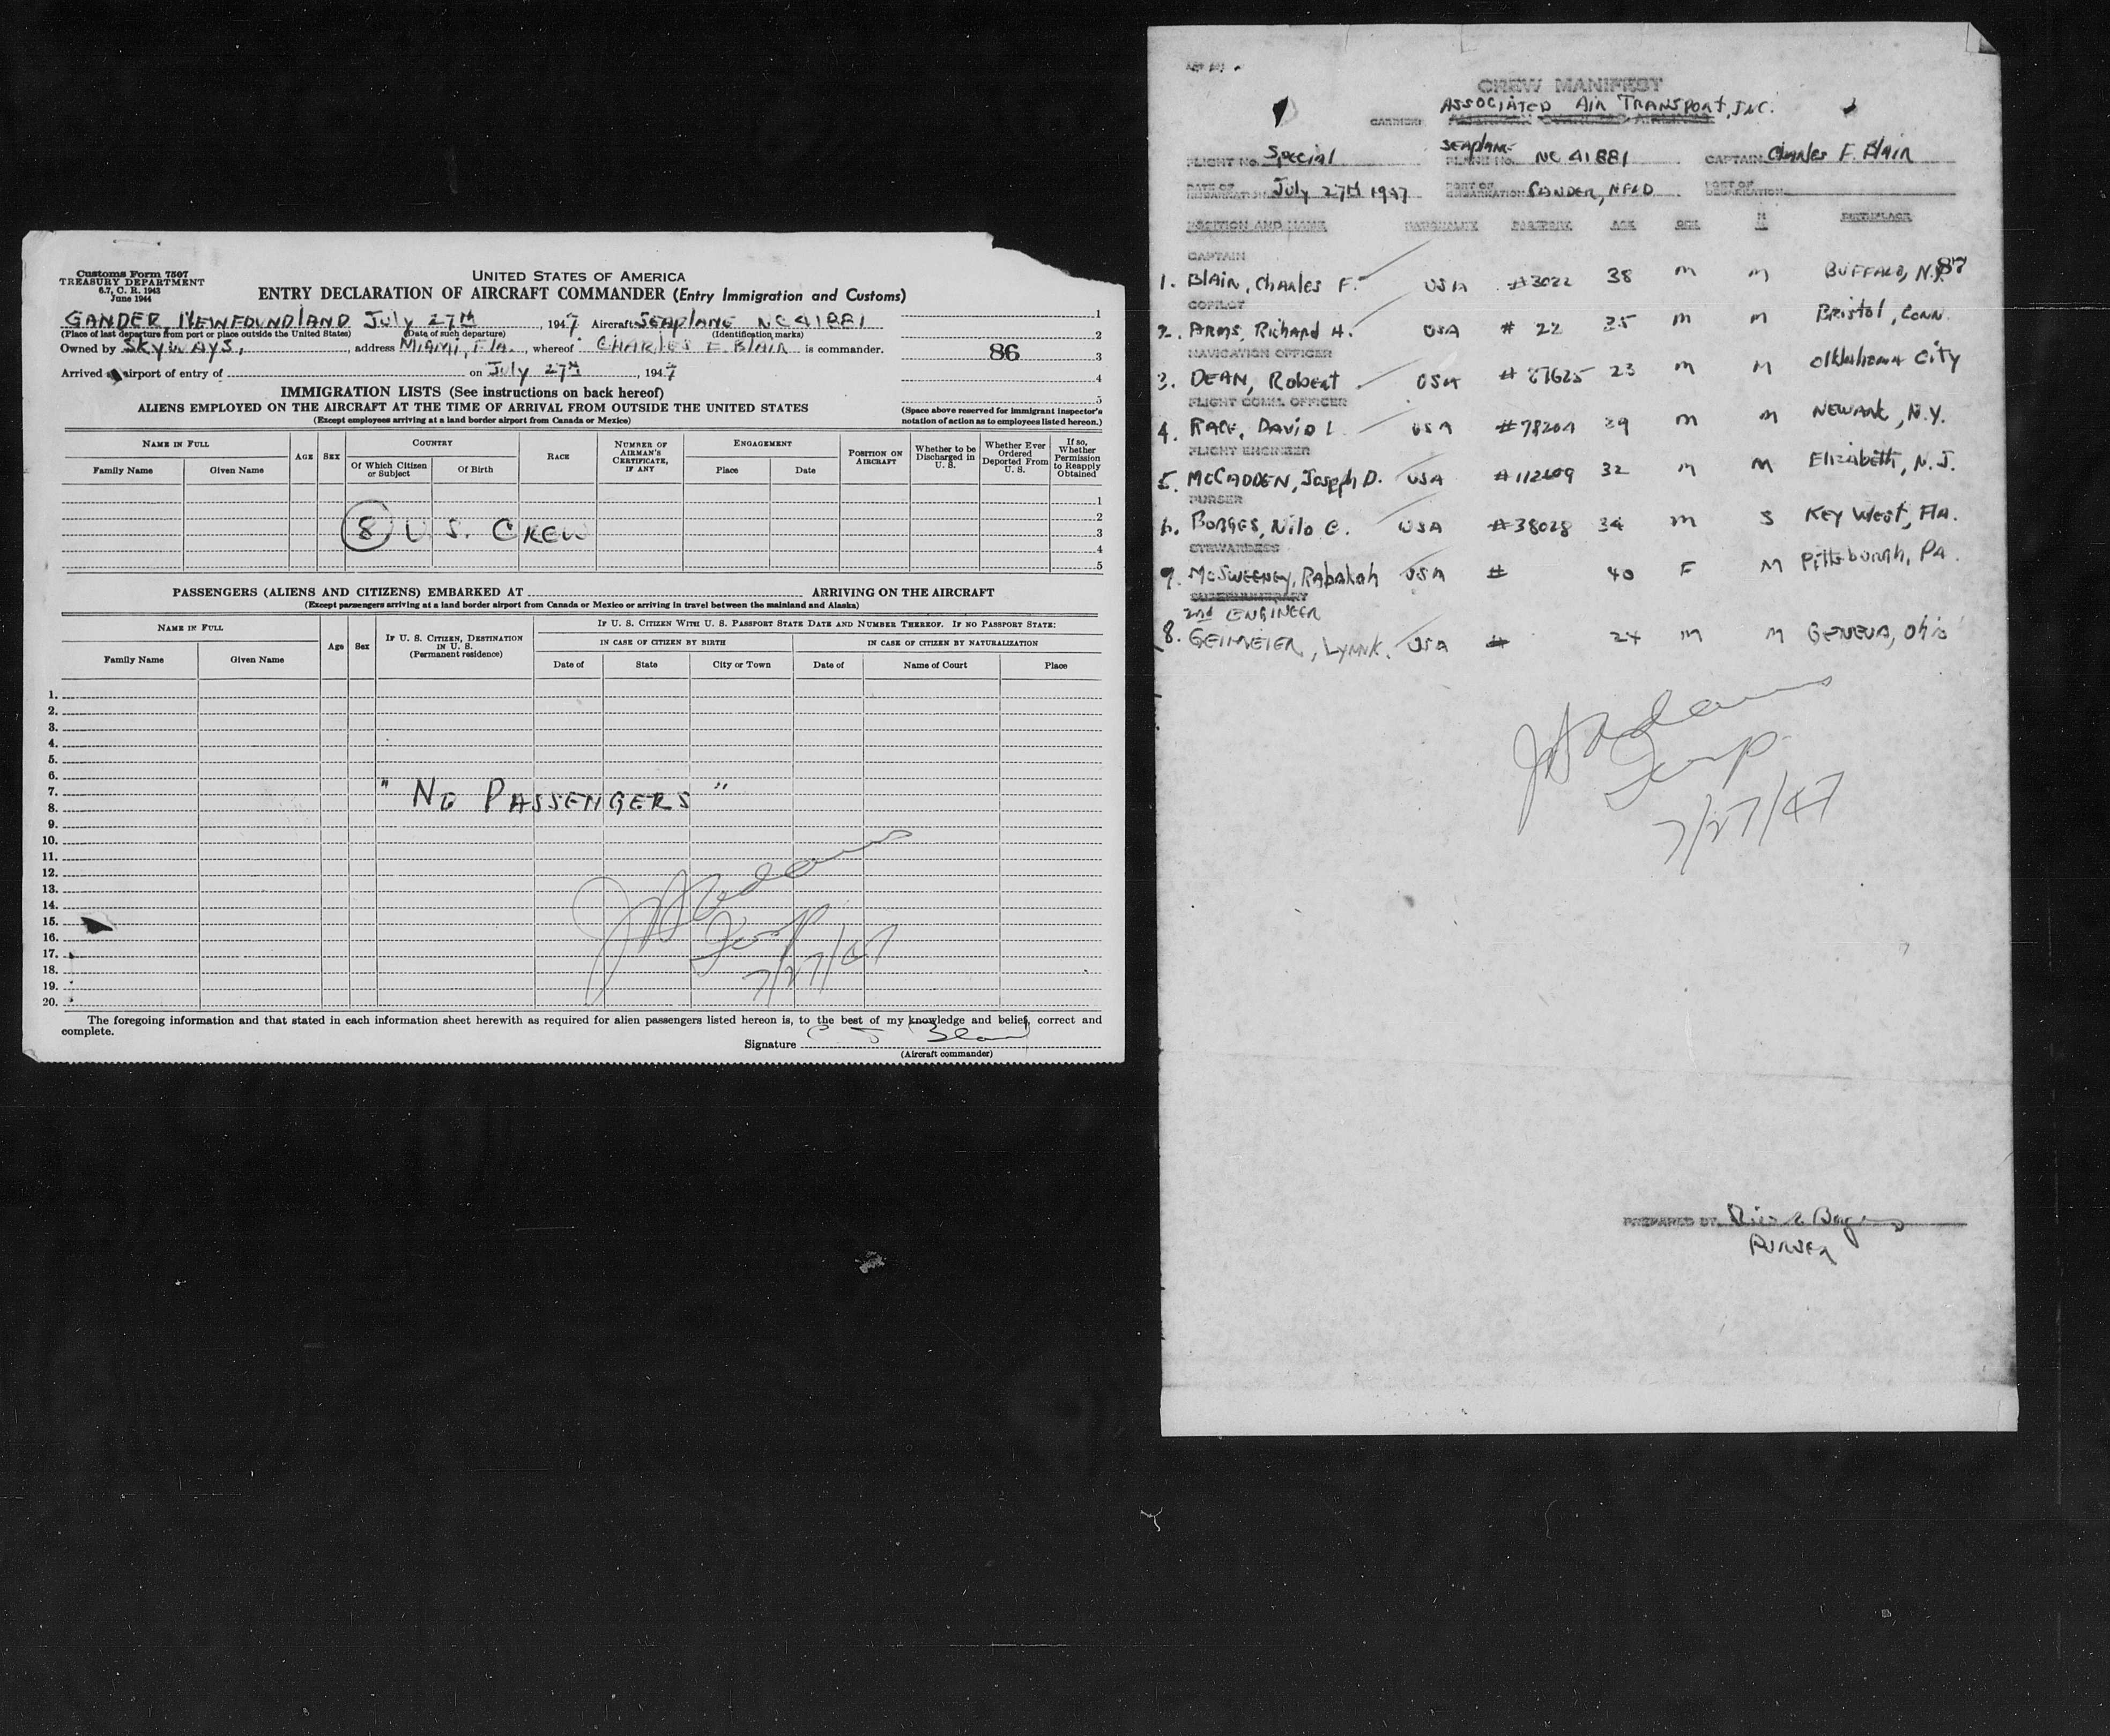 Customs Form 7507
TREASURY DEPARTMENT
6.7, C. R. 1943
June 1944
UNITED STATES OF AMERICA
ENTRY DECLARATION OF AIRCRAFT COMMANDER (Entry Immigration and Customs)
GANDER, NEWFOUNDLAND July 27TH, 1947 Aircraft SEAPLANE NC 41881
(Place of last departure from port or place outside the United States) (Date of such departure) (Identification marks)
Owned by SKYWAYS, address MIAMI, FLA., whereof CHARLES F. BLAIR is commander.
Arrived airport of entry of on July 27TH, 1947
1
2
86 3
4
5
IMMIGRATION LISTS (See instructions on back hereof)
ALIENS EMPLOYED ON THE AIRCRAFT AT THE TIME OF ARRIVAL FROM OUTSIDE THE UNITED STATES
(Except employees arriving at a land border airport from Canada or Mexico)
(Space above reserved for immigrant inspector's notation of action as to employees listed hereon.)
NAME IN FULL AGE SEX COUNTRY RACE NUMBER OF AIRMAN'S CERTIFICATE, IF ANY ENGAGEMENT POSITION ON AIRCRAFT Whether to be Discharged in U. S. Whether Ever Ordered Deported From U. S. If so, Whether Permission to Reapply Obtained
Family Name Given Name Of Which Citizen or Subject Of Birth Place Date
1
2
8 U. S. CREW 3
4
5
PASSENGERS (ALIENS AND CITIZENS) EMBARKED AT ARRIVING ON THE AIRCRAFT
(Except passengers arriving at a land border airport from Canada or Mexico or arriving in travel between the mainland and Alaska)
NAME IN FULL Age Sex IF U. S. CITIZEN, DESTINATION IN U. S. (Permanent residence) IF U. S. CITIZEN WITH U. S. PASSPORT STATE DATE AND NUMBER THEREOF. IF NO PASSPORT STATE:
IN CASE OF CITIZEN BY BIRTH IN CASE OF CITIZEN BY NATURALIZATION
Family Name Given Name Date of State City or Town Date of Name of Court Place
1.
2.
3.
4.
5.
6.
7. " NO PASSENGERS "
8.
9.
10.
11.
12.
13.
14.
15.
16.
17.
18.
19.
20.
Adams
7/27/47
The foregoing information and that stated in each information sheet herewith as required for alien passengers listed hereon is, to the best of my knowledge and belief, correct and
complete.
Signature C F Blair
(Aircraft commander)
CREW MANIFEST
CARRIER: ASSOCIATED AIR TRANSPORT, INC.
AMERICAN OVERSEAS AIRLINES
FLIGHT NO. Special SEAPLANE PLANE NO. NC 41881 CAPTAIN Charles F. Blair
DATE OF EMBARKATION July 27TH 1947 PORT OF EMBARKATION GANDER, NFLD PORT OF DEBARKATION
POSITION AND NAME NATIONALITY PASSPORT AGE SEX M S BIRTHPLACE
CAPTAIN
1. BLAIR, Charles F. USA #3022 38 M M BUFFALO, N.Y. 87
COPILOT
2. ARMS, Richard H. USA # 22 35 M M Bristol, CONN.
NAVIGATION OFFICER
3. DEAN, Robert USA # 87625 23 M M Olklahoma City
FLIGHT COMM. OFFICER
4. RACE, DAVID L. USA #78204 39 M M NEWARK, N.Y.
FLIGHT ENGINEER
5. McCADDEN, Joseph D. USA #112609 32 M M Elizabeth, N.J.
PURSER
6. BORGES, Nilo C. USA #38028 34 M S Key West, FLA.
STEWARDESS
7. McSWEENEY, Rabakah USA # 40 F M Pittsburgh, PA.
SUPERNUMERARY
2nd ENGINEER
8. GEITMEIER, LYNN K. USA # 24 M M GENEVA, Ohio
Adams
7/27/47
PREPARED BY Nilo C Borges
PURSER